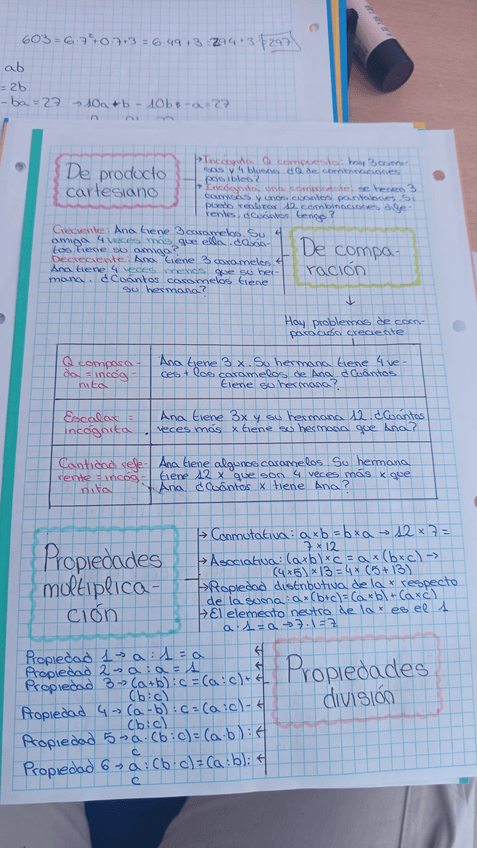 603 = 6·7²+0·7+3 = 6·49+3 = 294+3 = 297
ab
= 2b
- ba = 27 → 10a + b - 10b - a = 27
De producto
cartesiano
→ Incognita Q compuesta: hay 3 cami-
sas y 4 blusas. ¿Q te combinaciones
posibles?
→ Incógnita una componente: se tienen 3
camisas y unos cuantos pantalones. Si
puedo realizar 12 combinaciones dife-
rentes, ¿Cuántos tengo?
Creciente: Ana tiene 3 caramelos. Su
amiga 4 veces más que ella. ¿Cuán-
tos tiene su amiga?
Decreciente: Ana tiene 3 caramelos.
Ana tiene 4 veces menos que su her-
mana. ¿Cuántos caramelos tiene
su hermana?
De compa-
ración
Hay problemas de com-
paración creciente
Q compara-
da = incóg-
nita
Ana tiene 3 x. Su hermana tiene 4 ve-
ces + los caramelos de Ana. ¿Cuántos
tiene su hermana?
Escalar =
incógnita
Ana tiene 3x y su hermana 12. ¿Cuántas
veces más x tiene su hermana que Ana?
Cantidad refe-
rente = incóg-
nita
Ana tiene algunos caramelos. Su hermana
tiene 12 x que son 4 veces más x que
Ana ¿Cuántos x tiene Ana?
Propiedades
multiplica-
ción
→ Conmutativa: a×b = b×a → 12×7 =
7×12
→ Asociativa: (a×b)×c = a×(b×c) →
(4×5)×13 = 4×(5+13)
→ Propiedad distributiva de la × respecto
de la suma: a×(b+c) = (a×b)+(a×c)
→ El elemento neutro de la × es el 1
a:1 = a → 7:1 = 7
Propiedad 1 → a : 1 = a
Propiedad 2 → a : a = 1
Propiedad 3 → (a+b):c = (a:c)+
(b:c)
Propiedad 4 → (a-b):c = (a:c)-
(b:c)
Propiedad 5 → a·(b:c) = (a·b):
c
Propiedad 6 → a:(b:c) = (a:b):
c
Propiedades
división